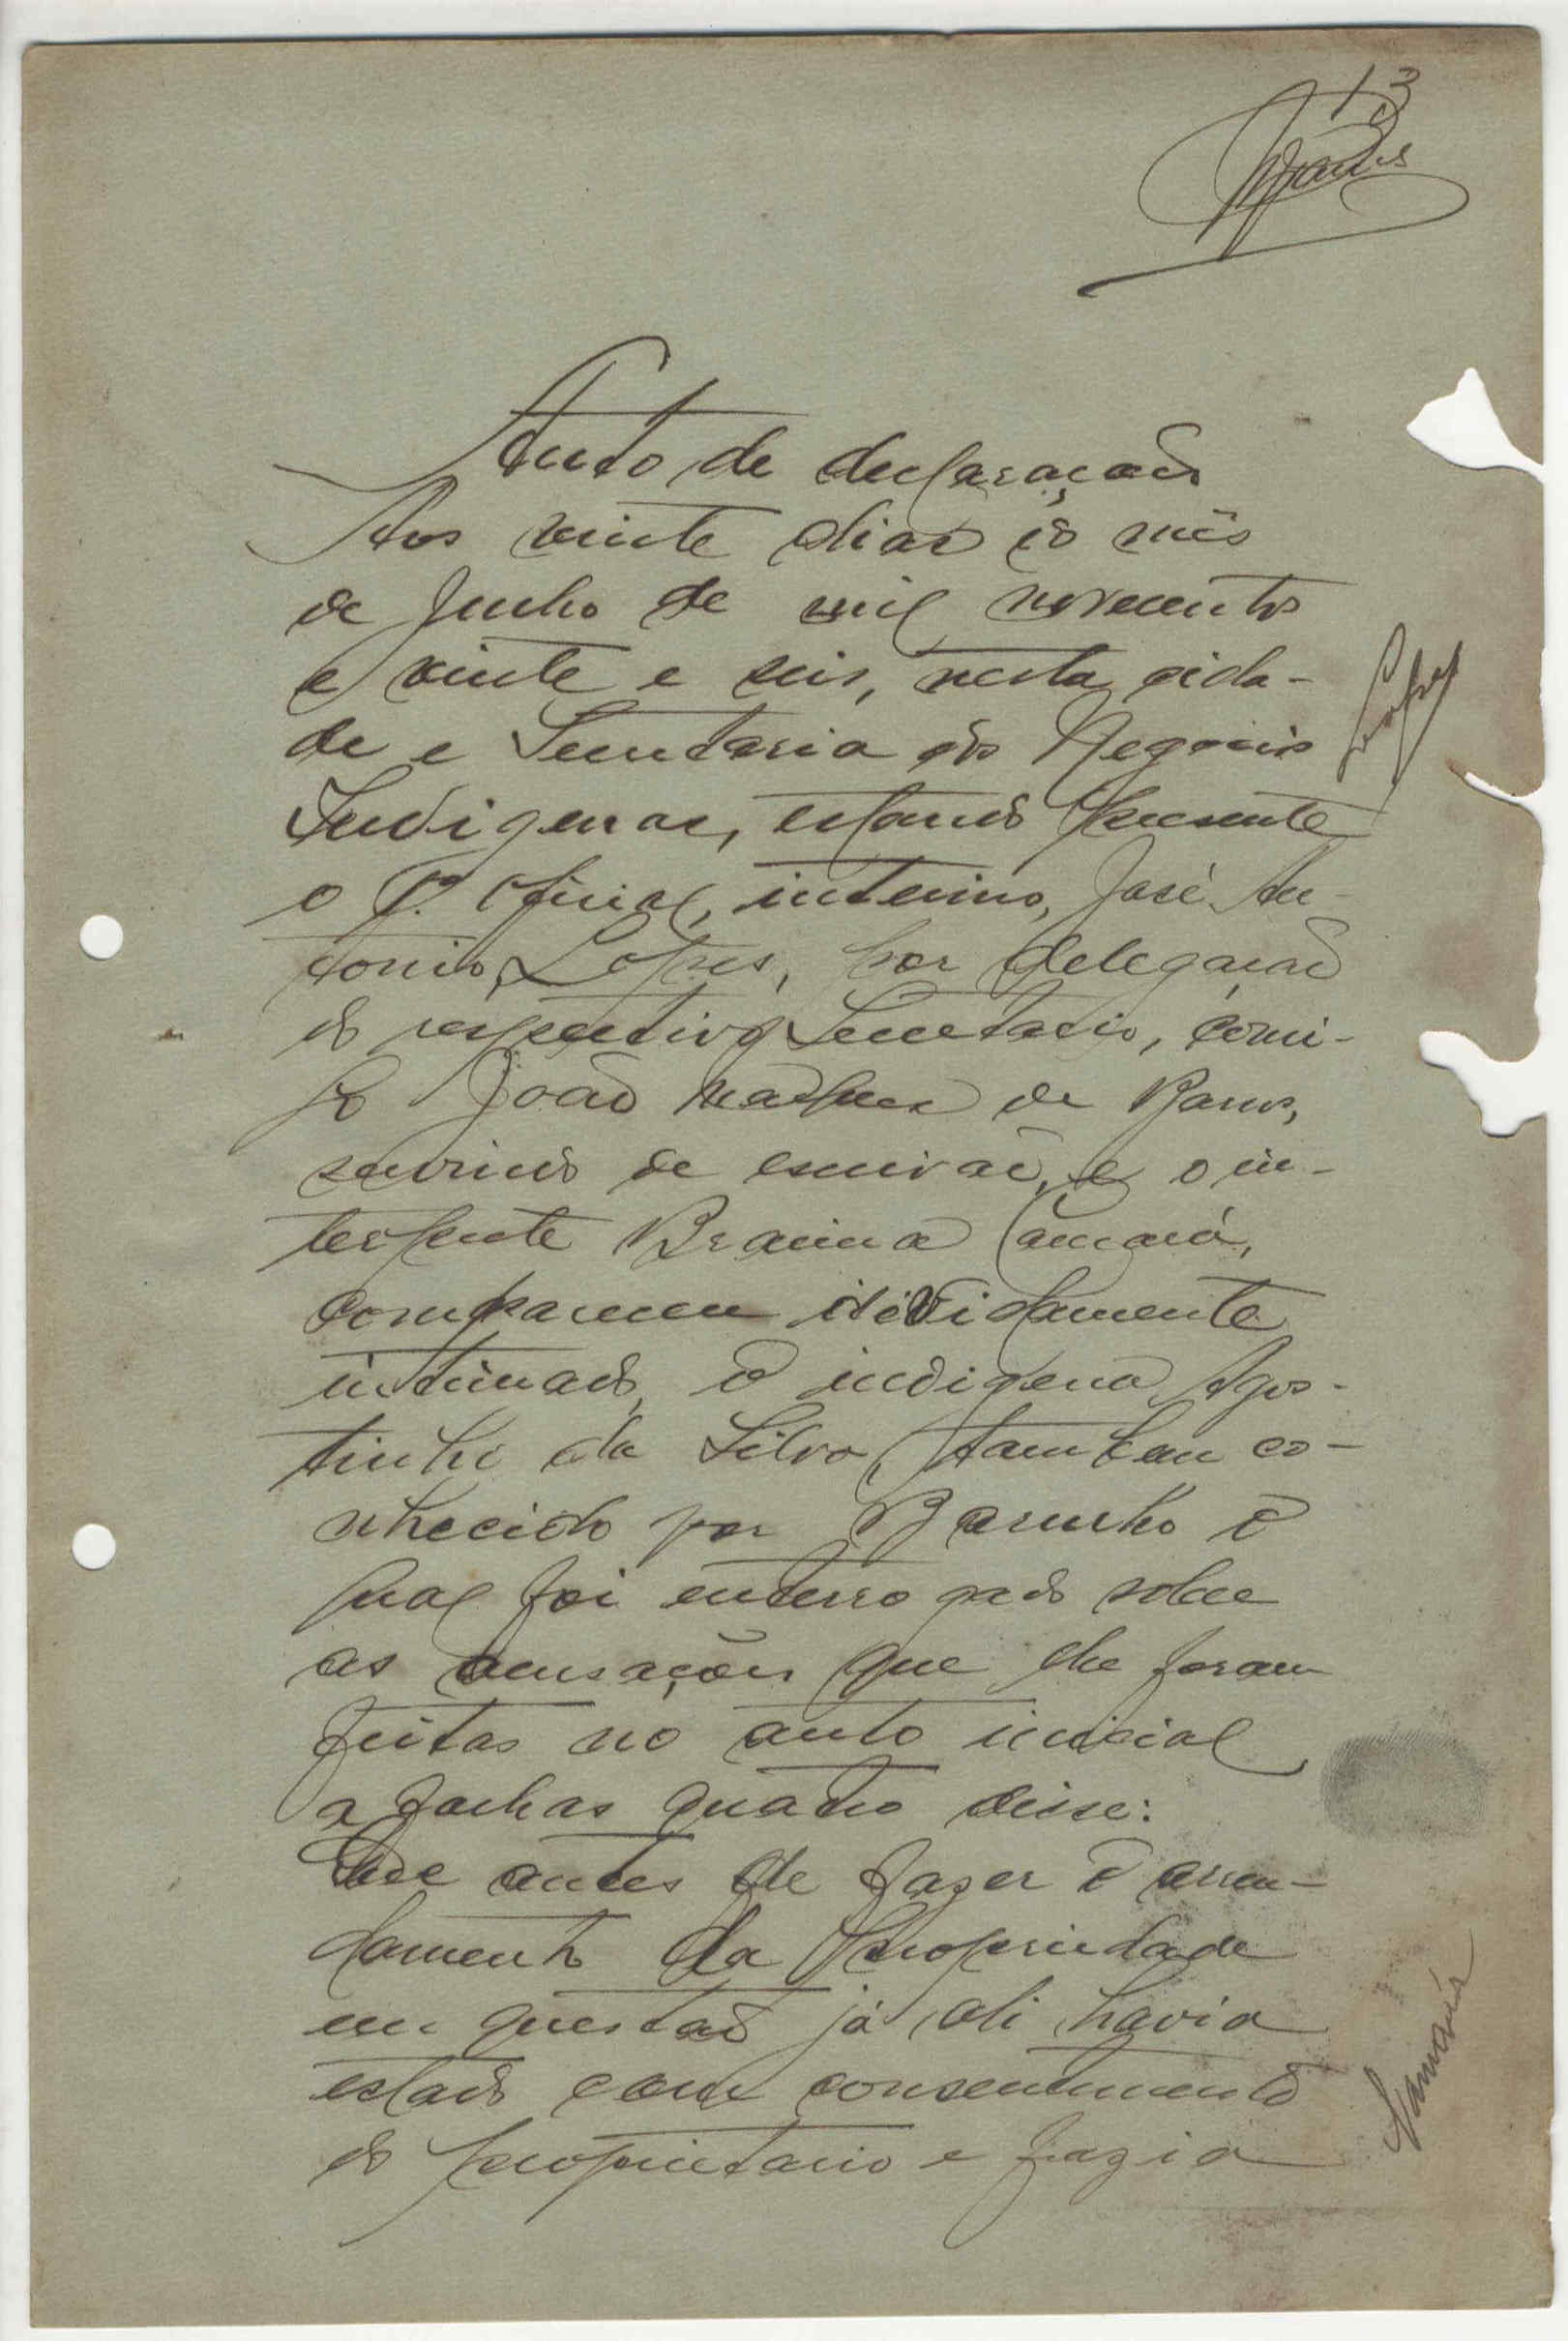 13
Auto de declaração
Aos vinte dias do mês
de Junho de mil novecentos
e vinte e seis, nesta cida-
de e Secretaria dos Negocios
Indigenas, estando presente
o 1º. oficial, interino, José An-
tonio Lopes, por delegação
do respectivo Secretario, comi-
go João Marques de Barros,
servindo de escrivão, e o in-
terprete Braima Camará,
compareceu devidamente
intimado, o indigena Agos-
tinho da Silva, tambem co-
nhecido por o
qual foi interrogado sobre
as acusações que lhe foram
feitas no auto inicial
a folhas quatro disse:
Que antes de fazer o arren-
damento da propriedade
em questão já ali havia
estado com consentimento
do proprietario e fazia
Lopes
Camará